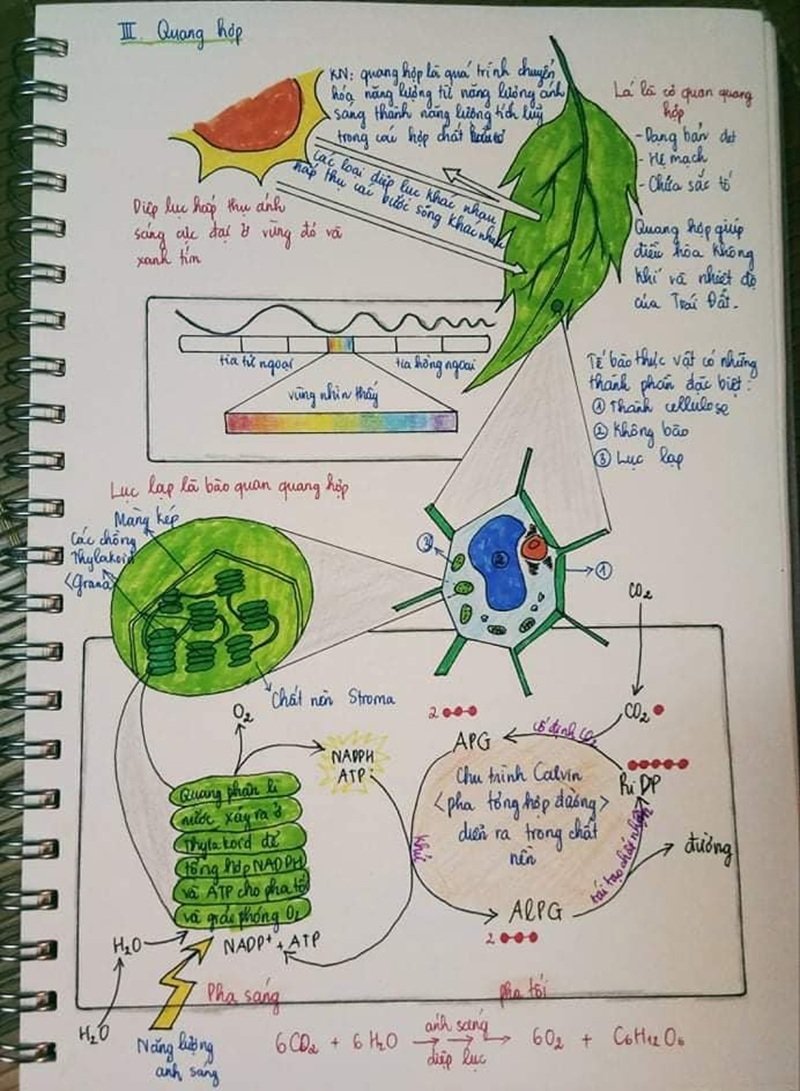 III. Quang hợp
KN: quang hợp là quá trình chuyển
hóa năng lượng từ năng lượng ánh
sáng thành năng lượng tích luỹ
trong các hợp chất hữu cơ
Các loại diệp lục khác nhau
hấp thụ các bước sóng khác nhau
Lá là cơ quan quang
hợp
- Dạng bản dẹt
- Hệ mạch
- Chứa sắc tố
Diệp lục hấp thụ ánh
sáng cực đại ở vùng đỏ và
xanh tím
Quang hợp giúp
điều hòa không
khí và nhiệt độ
của Trái Đất.
tia tử ngoại
tia hồng ngoại
vùng nhìn thấy
Tế bào thực vật có những
thành phần đặc biệt:
① Thành cellulose
② Không bào
③ Lục lạp
Lục lạp là bào quan quang hợp
Màng kép
Các chồng
Thylakoid
<Grana>
Chất nền Stroma
③
②
①
CO2
CO2
O2
NADPH
ATP
2
APG
cố định CO2
RiDP
Chu trình Calvin
<pha tổng hợp đường>
diễn ra trong chất
nền
khử
tái tạo chất nhận
đường
AlPG
2
Quang phân li
nước xảy ra ở
Thylakoid để
tổng hợp NADPH
và ATP cho pha tối
và giải phóng O2
H2O
NADP+ + ATP
H2O
Pha sáng
pha tối
Năng lượng
anh sáng
6CO2 + 6H2O ánh sáng → → → diệp lục 6O2 + C6H12O6